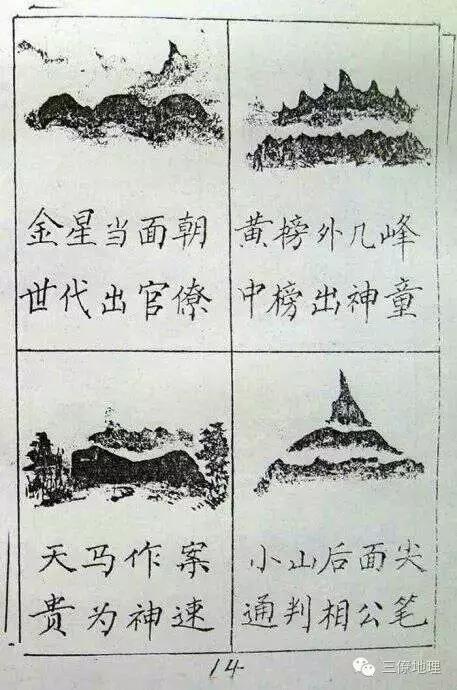 金星当面朝
世代出官僚
黄榜外几峰
中榜出神童
天马作案
貴为神速
小山后面尖
通判相公笔
14
三僚地理